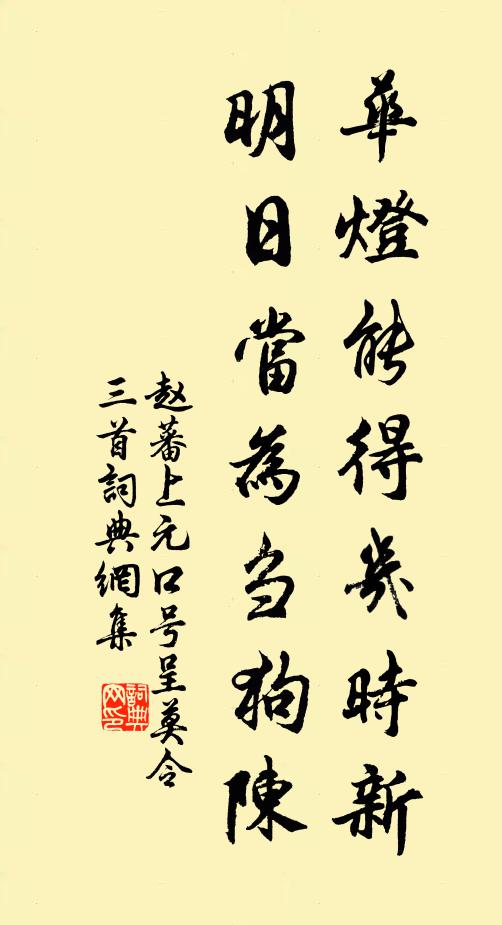 華燈能得幾時新
明日當為芻狗陳
赵蕃上元口号呈莫令
三首詞典網集
詞典
网印